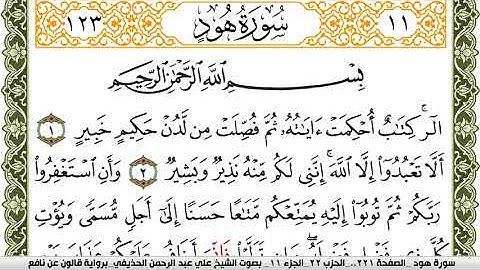 ١١ سُورَةُ هُودٍ ١٢٣
بِسْمِ اللَّهِ الرَّحْمَٰنِ الرَّحِيمِ
الٓرۚ كِتَٰبٌ أُحْكِمَتْ ءَايَٰتُهُۥ ثُمَّ فُصِّلَتْ مِن لَّدُنْ حَكِيمٍ خَبِيرٍ ١
أَلَّا تَعْبُدُوٓا۟ إِلَّا ٱللَّهَۚ إِنَّنِى لَكُم مِّنْهُ نَذِيرٌ وَبَشِيرٌ ٢ وَأَنِ ٱسْتَغْفِرُوا۟
رَبَّكُمْ ثُمَّ تُوبُوٓا۟ إِلَيْهِ يُمَتِّعْكُم مَّتَٰعًا حَسَنًا إِلَىٰٓ أَجَلٍ مُّسَمًّى وَيُؤْتِ
سورة هود _الصفحة ٢٢١.. الحزب ٢٢_ الجزء ١١_ بصوت الشيخ علي عبد الرحمن الحذيفي_برواية قالون عن نافع